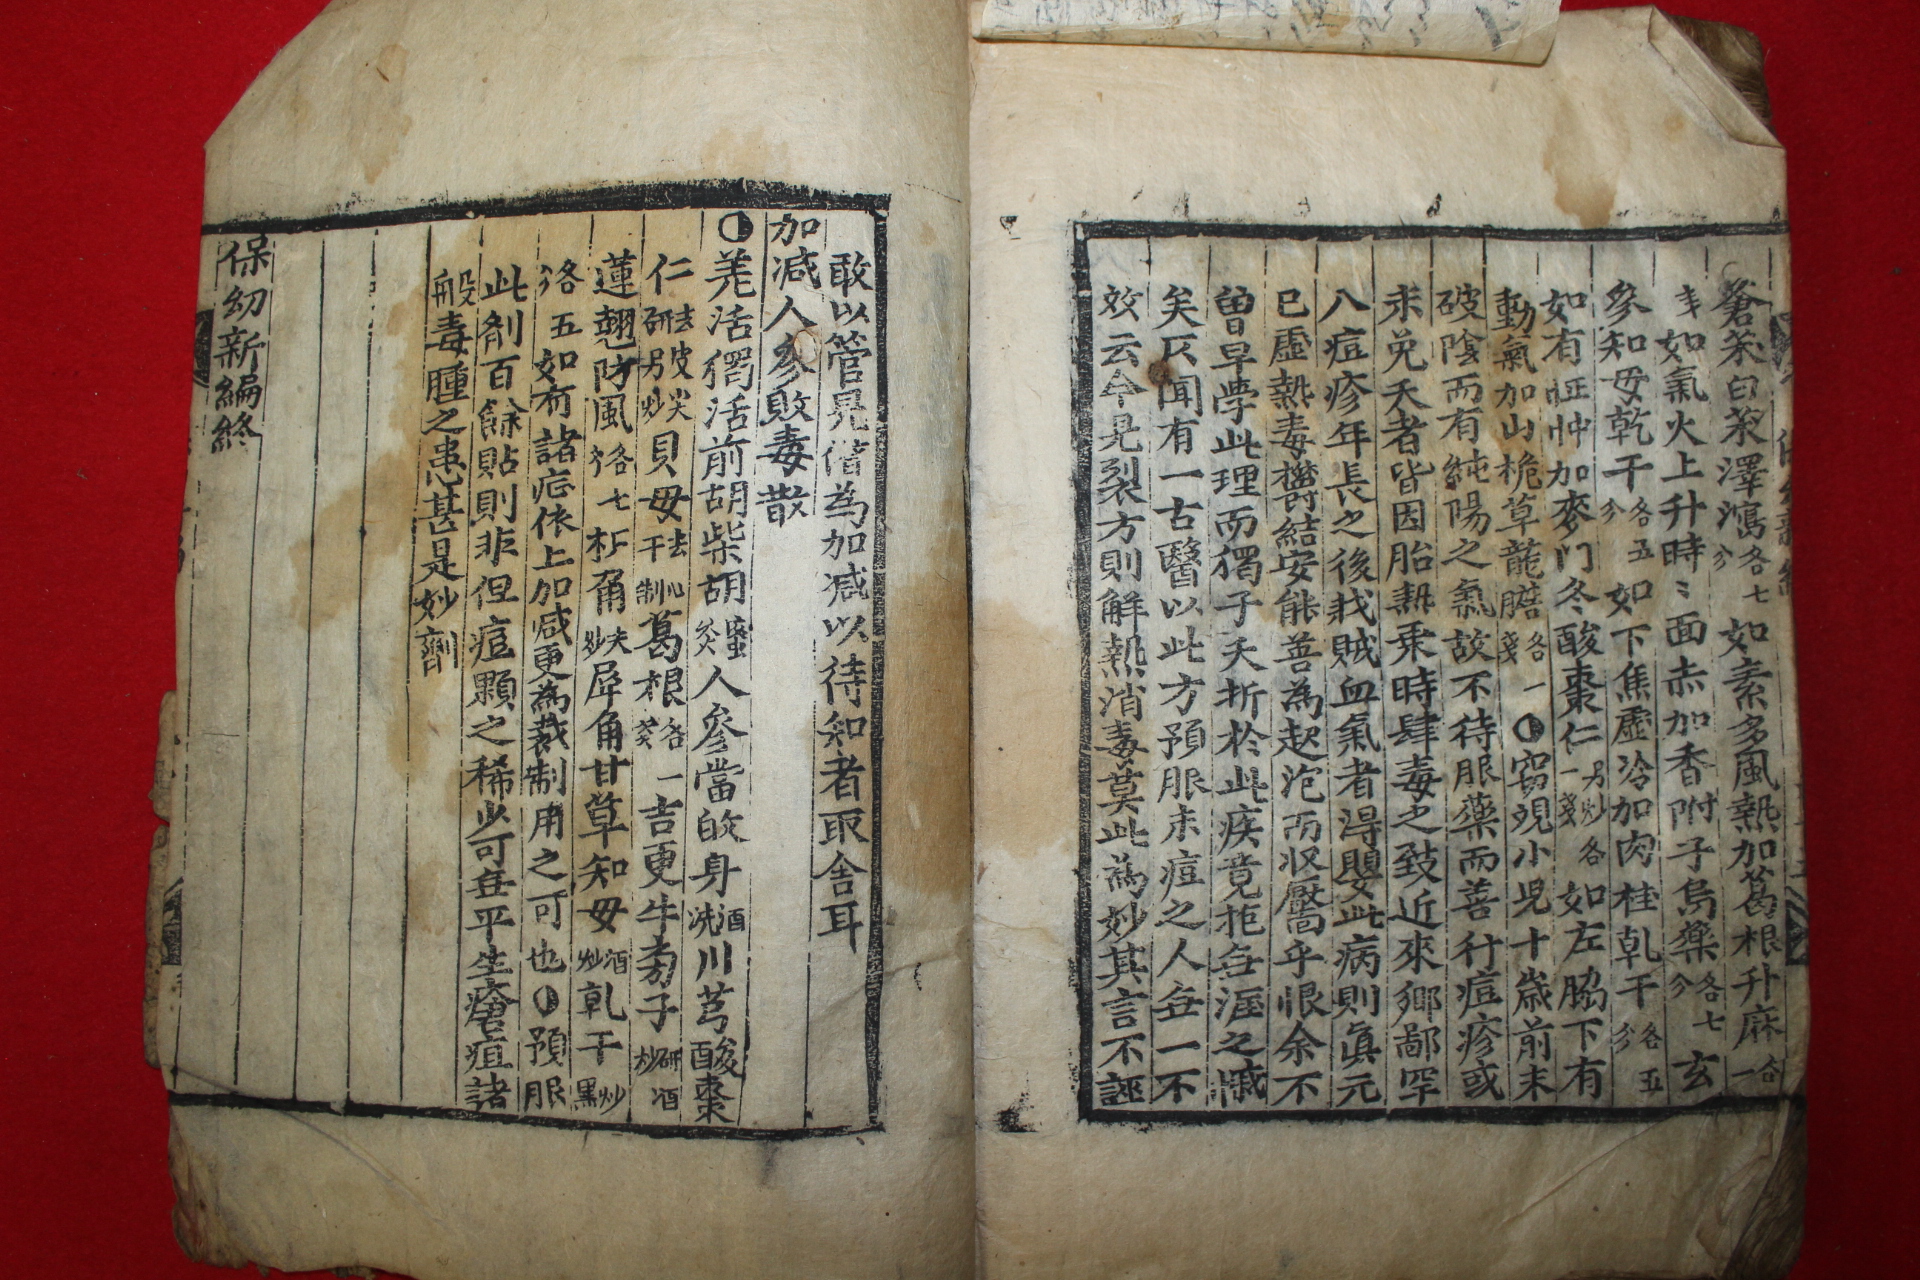 蒼朮白朮澤瀉各七分如素多風熱加葛根升麻各一
戔如氣火上升時〻面赤加香附子烏藥各七分玄
參知母乾干各五分如下焦虛冷加肉桂乹干各五分
如有怔忡加麥門冬酸棗仁另炒各一戔如左脇下有
動氣加山梔草龍膽各一戔◑竊覸小児十歲前未
破陰而有純陽之氣故不待服藥而善行痘疹或
未免夭者皆因胎熱乘時肆毒之致近來鄕鄙罕
八痘疹年長之後戕賊血氣者淂嬰此病則眞元
已虛熱毒欝結安能善為起泡而収靨乎恨余不
曽早學此理而獨子夭折於此疾竟抱無涯之慽
矣仄聞有一古醫以此方預服未痘之人無一不
效云今見裂方則解熱消毒莫此為妙其言不誣
敢以管見僣為加减以待知者取舍耳
加减人參敗毒散
◑羌活獨活前胡柴胡蜜灸人參當皈身酒洗川芎酸棗
仁去皮尖研另炒貝母去心干制葛根各一戔吉更牛蒡子研酒炒
蓮翹防風各七分枳殼夫炒犀角甘草知母酒炒乹干炒黑
各五分如有諸症依上加减更為裁制用之可也◑預服
此劑百餘貼則非但痘顆之稀少可無平生瘡疽諸
般毒腫之患甚是妙劑
保幼新編終